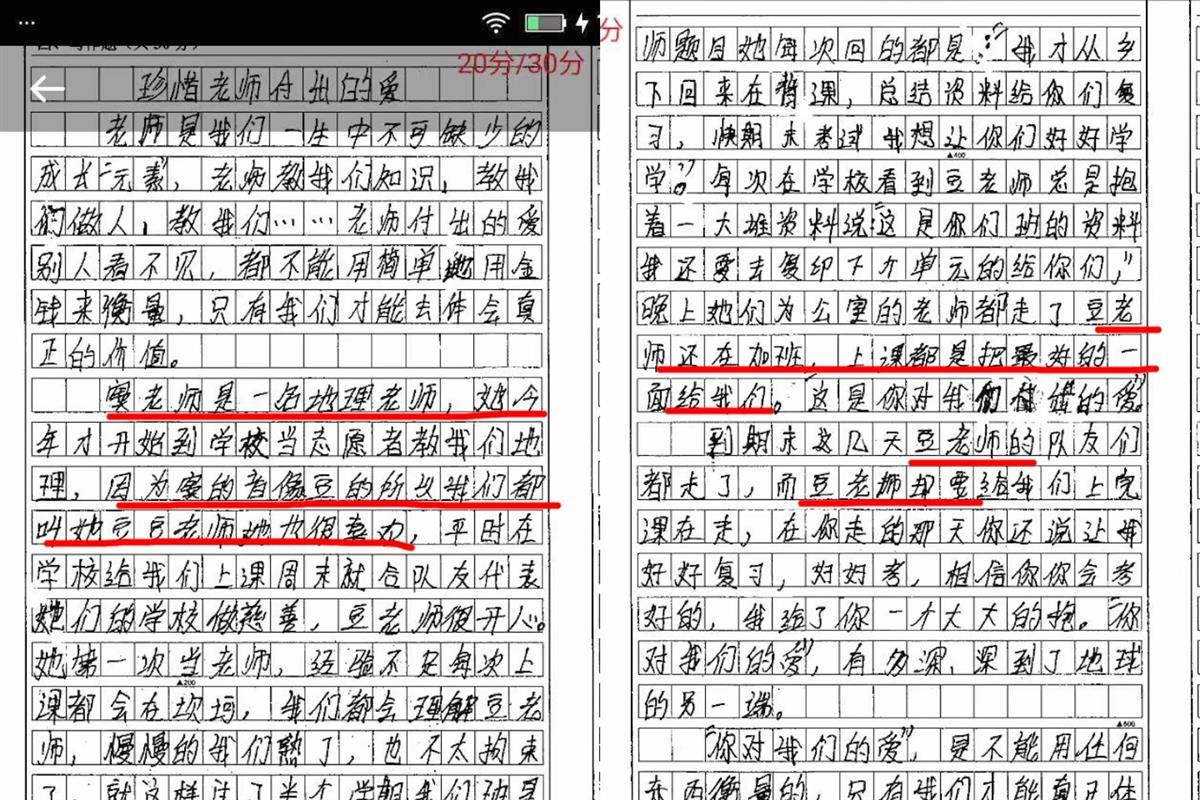 20分/30分
珍惜老师付出的爱
老师是我们一生中不可缺少的
成长“元素”,老师教我们知识,教我
们做人,教我们……老师付出的爱
别人看不见,都不能用简单地用金
钱来衡量,只有我们才能去体会真
正的价值。
窦老师是一名地理老师,她今
年才开始到学校当志愿者教我们地
理,因为窦的音像豆的所以我们都
叫她豆豆老师她也很喜欢,平时在
学校给我们上课周末就合队友代表
她们的学校做慈善,豆老师很开心。
她第一次当老师,经验不足每次上
▲200
课都会在坎坷,我们都会理解豆老
师,慢慢的我们熟了,也不太拘束
了,就这样过了半个学期我们班是
分
师题目她每次回的都是:“我才从乡
下回来在背课,总结资料给你们复
习,快期末考试我想让你们好好学
▲400
学”。每次在学校看到豆老师总是抱
着一大堆资料说:“这是你们班的资料
我还要去复印下个单元的给你们,”
晚上她们办公室的老师都走了豆老
师还在加班,上课都是把最好的一
面给我们。“这是你对我们的爱”
到期末这几天豆老师的队友们
都走了,而豆老师却要给我们上完
课在走,在你走的那天你还说让我
好好复习,好好考,相信你你会考
好的,我给了你一个大大的抱。“你
对我们的爱”,有多深,深到了地球
的另一端。
▲600
“你对我们的爱”,是不能用任何
东西衡量的,只有我们才能真正体